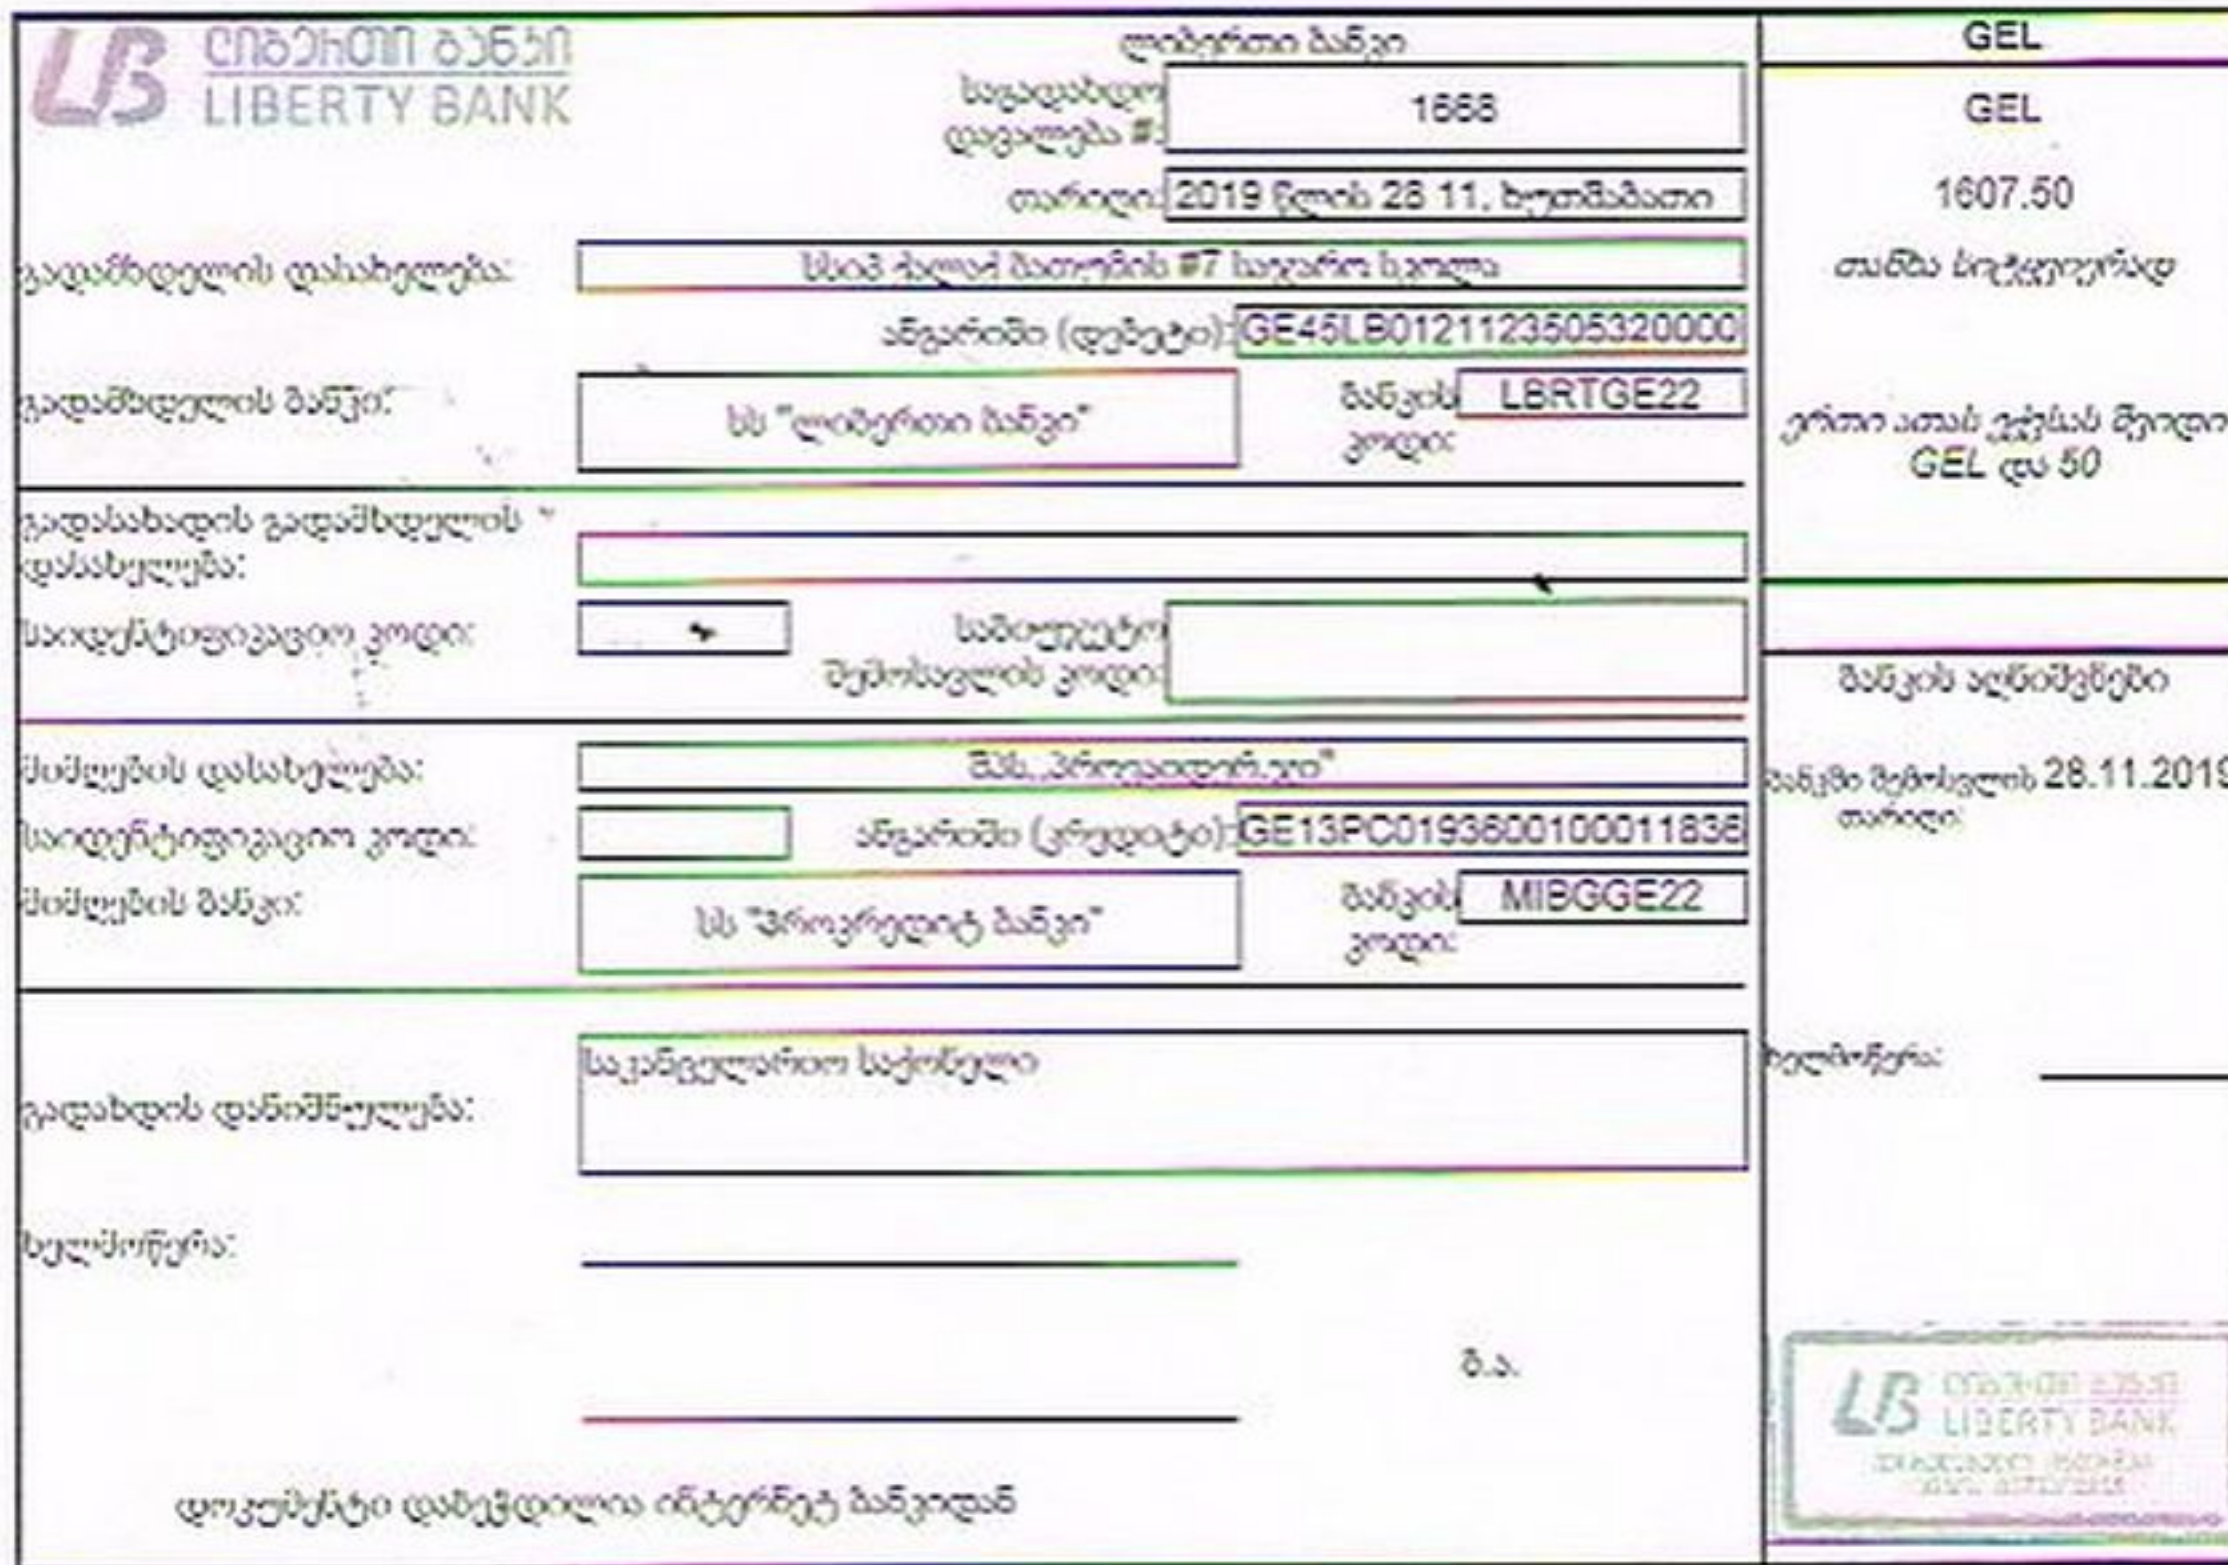 ლიბერთი ბანკი
LIBERTY BANK
ლიბერთი ბანკი
საგადახდო
დავალება #:
1668
თარიღი:
2019 წლის 28 11, ხუთშაბათი
გადამხდელის დასახელება:
სსიპ ქალაქ ბათუმის #7 საჯარო სკოლა
ანგარიში (დებეტი):
GE45LB0121123505320000
გადამხდელის ბანკი:
სს "ლიბერთი ბანკი"
ბანკის
კოდი:
LBRTGE22
გადასახადის გადამხდელის
დასახელება:
საიდენტიფიკაციო კოდი:
საბიუჯეტო
შემოსავლის კოდი:
მიმღების დასახელება:
შპს „პროვაიდერ.ჯი"
საიდენტიფიკაციო კოდი:
ანგარიში (კრედიტი):
GE13PC0193600100011836
მიმღების ბანკი:
სს "პროკრედიტ ბანკი"
ბანკის
კოდი:
MIBGGE22
გადახდის დანიშნულება:
საკანცელარიო საქონელი
ხელმოწერა:
ბ.ა.
დოკუმენტი დაბეჭდილია ინტერნეტ ბანკიდან
GEL
GEL
1607.50
თანხა სიტყვიერად
ერთი ათას ექვსას შვიდი
GEL და 50
ბანკის აღნიშვნები
ბანკში შემოსვლის 28.11.2019
თარიღი:
ხელმოწერა:
ლიბერთი ბანკი
LIBERTY BANK